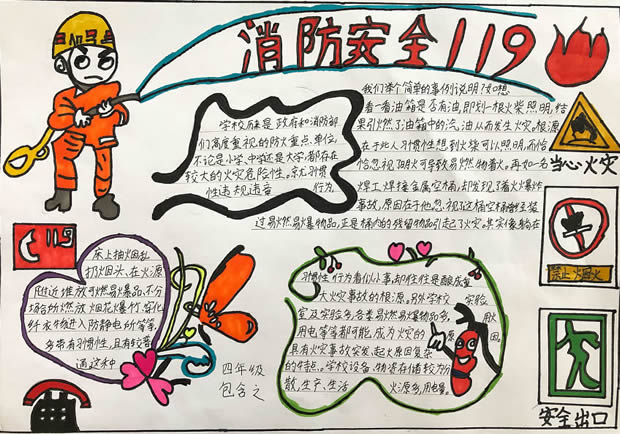 消防安全119
学校历来是政府和消防部
们高度重视的防火重点单位,
不论是小学、中学还是大学,都存在
较大的火灾危险性。就习惯
性违规违章 行为,
我们举个简单的事例说明:如想
看一看油箱是否有油,即划一根火柴照明,结
果引燃了油箱中的汽油从而发生火灾。根源
在于此人习惯性想到火柴可以照明,而恰
恰忽视了明火可导致易燃物着火,再如一名
焊工焊接金属空桶,却发现了着火爆炸
事故,原因在于他忽视了这桶空桶曾经装
过易燃易爆物品,正是桶内的残留物品引起了火灾。其实像躺在
当心火灾
119
床上抽烟乱
扔烟头、在火源
附近堆放可燃易爆品、不分
场合所燃放烟花爆竹、穿化
纤衣物进入防静电所等等,
多带有习惯性,且有较普
遍这种
习惯性行为看似小事,却往往是酿成重
大火灾事故的根源。别学校实验
室及实验多,各类易燃易爆物品多,用火
用电等等都可能成为火灾的原因。
具有火灾事故突发、起火原因复杂
的特点。学校设备、物资存储较为分
散,生产、生活 火源多,用电量。
四年级
包含之
禁止烟火
安全出口